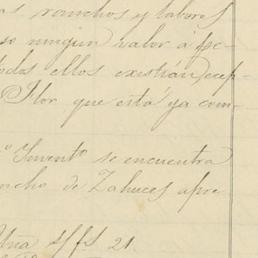 as ranchos y labores
se ningun valor á pe-
todas ellos existián, cep-
Flor que está ya com-
"Invent" se encuentra
ncho de Zahuces apre
Uña
21